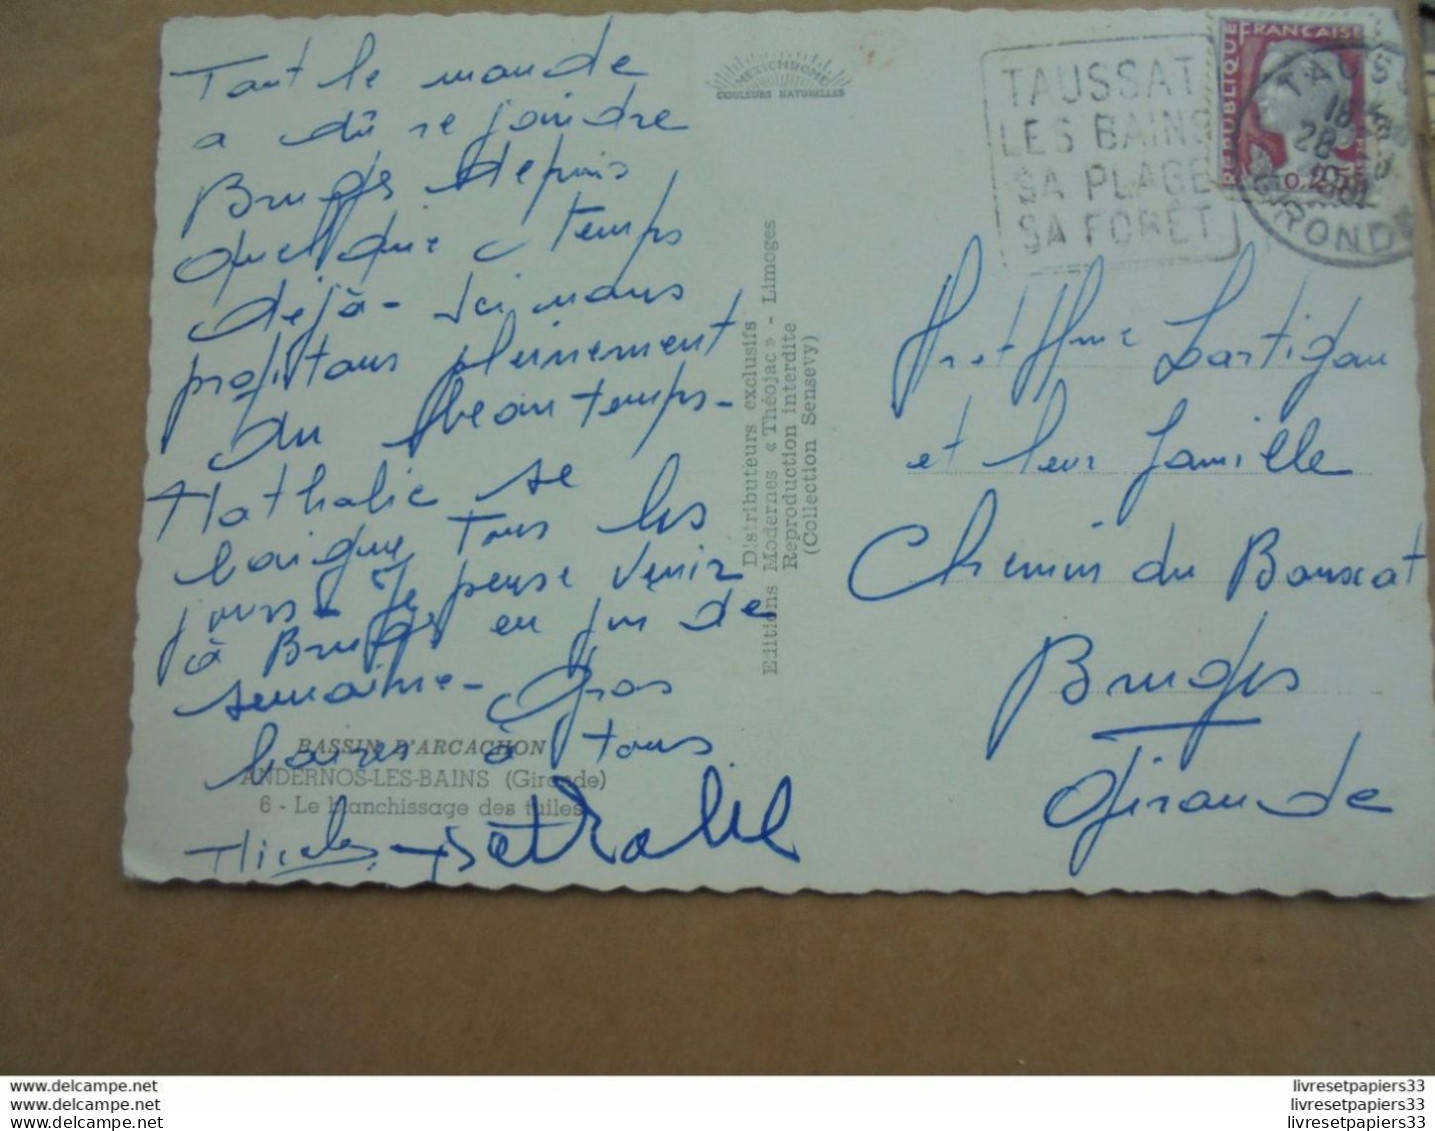 Tout le monde
a dû rejoindre
Bruges depuis
quelque temps
déjà - Ici nous
profitons pleinement
du beau temps -
Nathalie se
baigne tous les
jours - Je pense venir
à Bruges en fin de
semaine - Gros
baisers à tous
Nicolas Nathalie
BASSIN D'ARCACHON
ANDERNOS-LES-BAINS (Gironde)
6 - Le blanchissage des tuiles
MEXICHROME
COULEURS NATURELLES
Distributeurs exclusifs
Editions Modernes « Théojac » - Limoges
Reproduction interdite
(Collection Sensevy)
TAUSSAT
LES BAINS
SA PLAGE
SA FORÊT
REPUBLIQUE FRANCAISE
0,25
TAUSS
18
28
GIRONDE
Mr et Mme Lartigau
et leur famille
Chemin du Bouscat
Bruges
Gironde
www.delcampe.net
www.delcampe.net
www.delcampe.net
livresetpapiers33
livresetpapiers33
livresetpapiers33